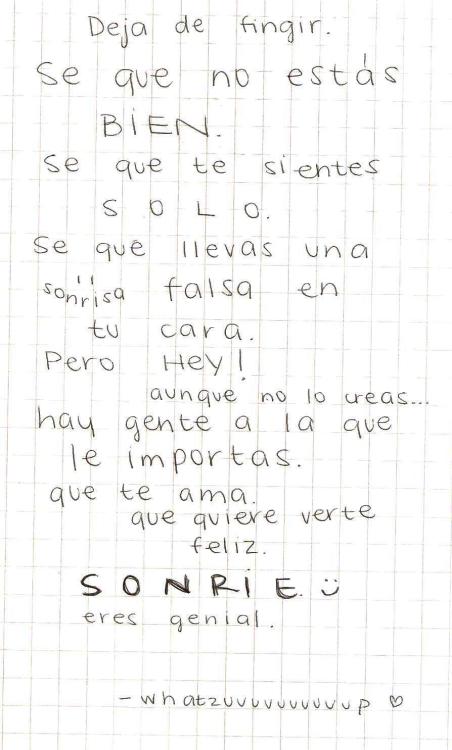 Deja de fingir.
Se que no estás
BIEN.
Se que te sientes
S O L O.
Se que llevas una
sonrisa falsa en
tu cara.
Pero Hey!
aunque no lo creas...
hay gente a la que
le importas.
que te ama.
que quiere verte
feliz.
SONRÍE. Ü
eres genial.
-whatzuvuvuvuvuvup ♡